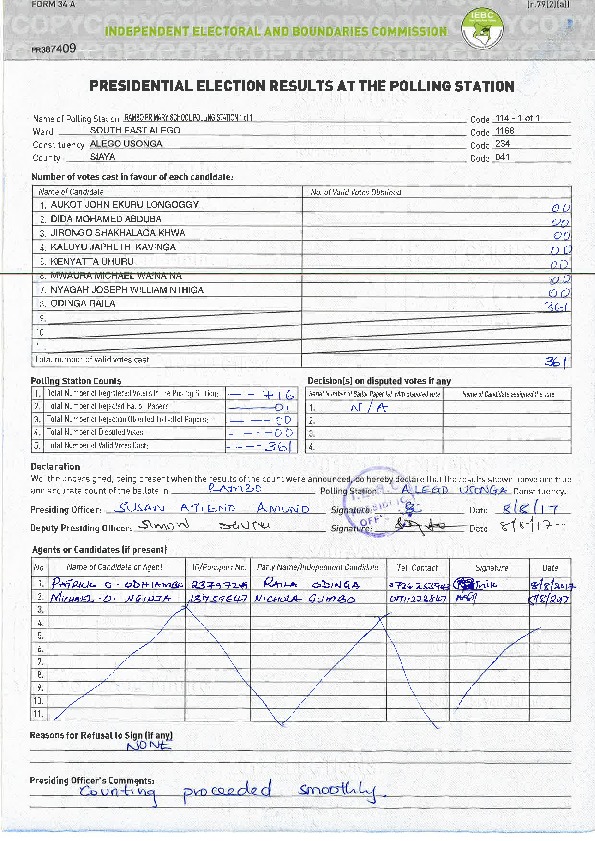 FORM 34 A [r.79(2)(a)]
INDEPENDENT ELECTORAL AND BOUNDARIES COMMISSION IEBC
PR387409
PRESIDENTIAL ELECTION RESULTS AT THE POLLING STATION
Name of Polling Station RAMBO PRIMARY SCHOOL POLLING STATION 1 of 1 Code 114 - 1 of 1
Ward SOUTH EAST ALEGO Code 1168
Constituency ALEGO USONGA Code 234
County SIAYA Code 041
Number of votes cast in favour of each candidate:
Name of Candidate No. of Valid Votes Obtained
1. AUKOT JOHN EKURU LONGOGGY 00
2. DIDA MOHAMED ABDUBA 00
3. JIRONGO SHAKHALAGA KHWA 00
4. KALUYU JAPHETH KAVINGA 00
5. KENYATTA UHURU 00
6. MWAURA MICHAEL WAINAINA 00
7. NYAGAH JOSEPH WILLIAM NTHIGA 00
8. ODINGA RAILA 361
9.
10.
Total number of valid votes cast 361
Polling Station Counts Decision(s) on disputed votes if any
1. Total Number of Registered Voters in the Polling Station: - - 416 Serial Number of Ballot Paper(s) with disputed vote Name of Candidate assigned the vote
2. Total Number of Rejected Ballot Papers 01 1. N/A
3. Total Number of Rejection Objected to Ballot Papers: - - - 00 2.
4. Total Number of Disputed Votes - - - 00 3.
5. Total Number of Valid Votes Cast: - - - 361 4.
Declaration
We the undersigned, being present when the results of the count were announced, do hereby declare that the results shown above are true
and accurate count of the ballots in RAMBO Polling Station. ALEGO USONGA Constituency.
Presiding Officer: SUSAN ATIENO AMUNO Signature: Date 8/8/17
Deputy Presiding Officer: SIMON Signature: Date 8/8/17
Agents or Candidates (if present)
No Name of Candidate or Agent ID/Passport No. Party Name/Independent Candidate Tel. Contact Signature Date
1. PATRICK O. ODHIAMBO RAILA ODINGA 8/8/2017
2. MICHAEL O. NICHOLA GUMBO
3.
4.
5.
6.
7.
8.
9.
10.
11.
Reasons for Refusal to Sign (if any)
NONE
Presiding Officer's Comments:
Counting proceeded smoothly.